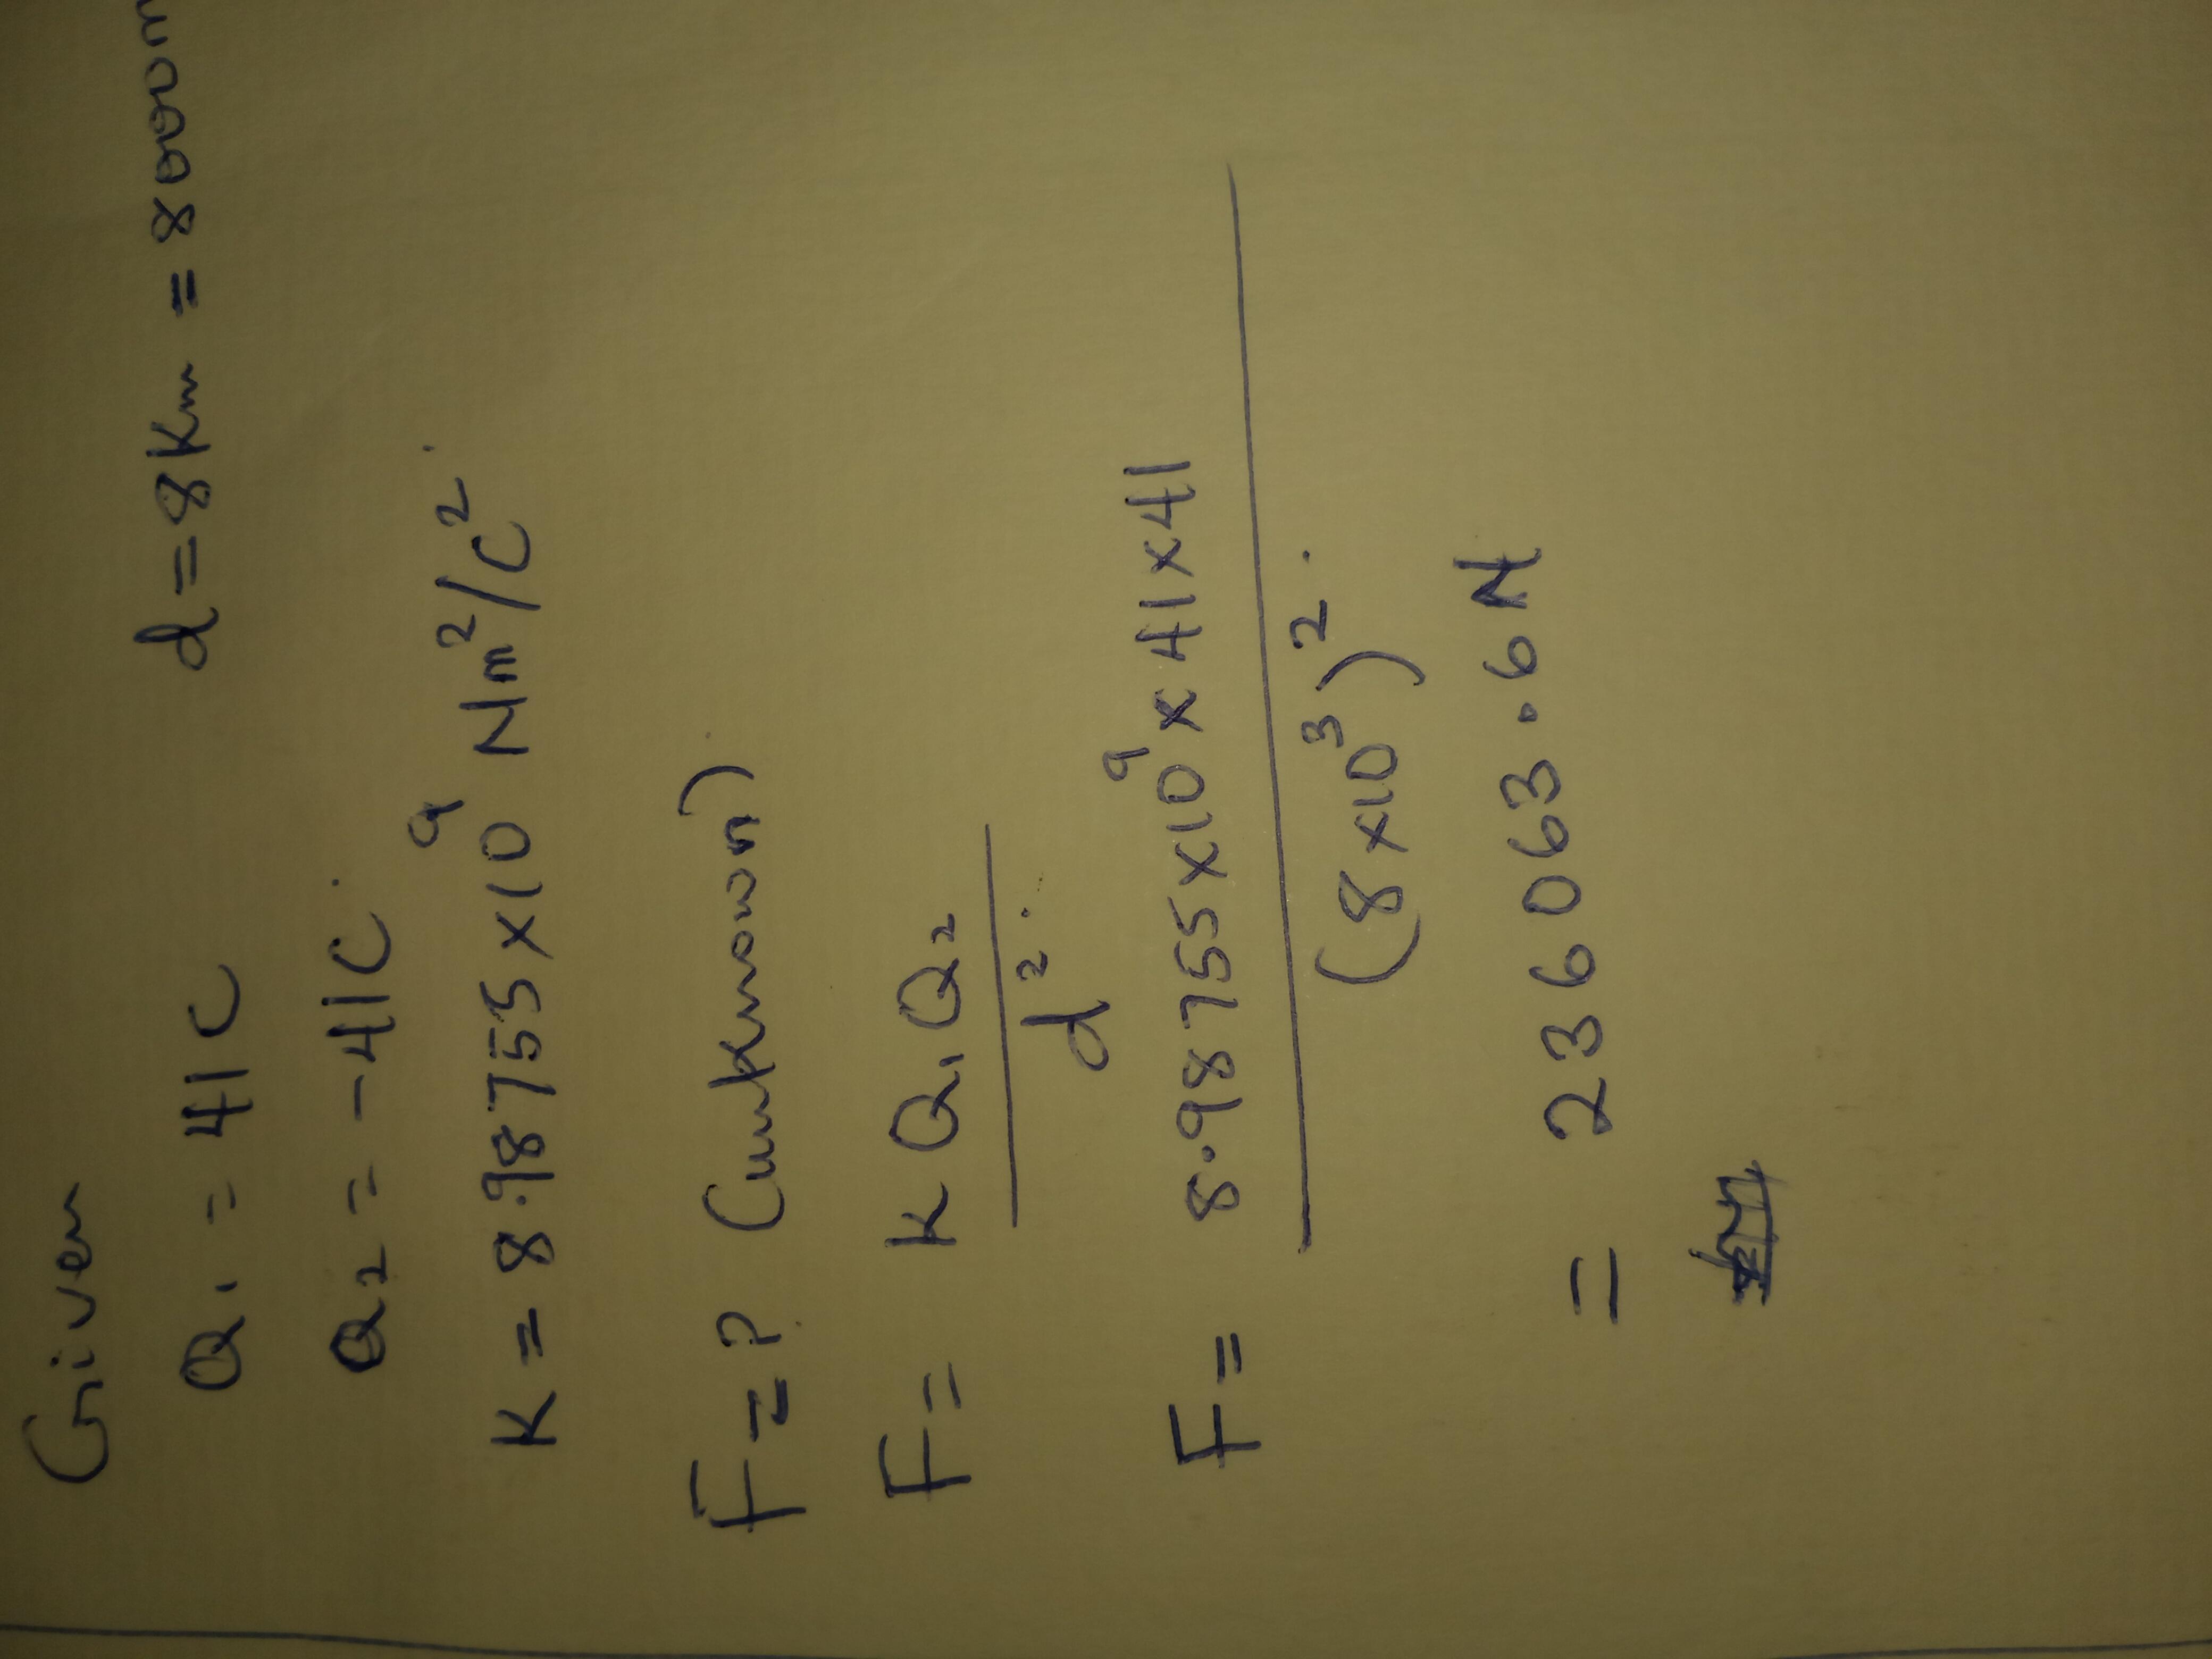 Given
Q1 = 41C d = 8Km = 8000m
Q2 = -41C
K = 8.98755x10^9 Nm^2/C^2
F = ? (unknown)
F = K Q1 Q2
d^2
F = 8.98755x10^9 x 41x41
(8x10^3)^2
= 236063.6N